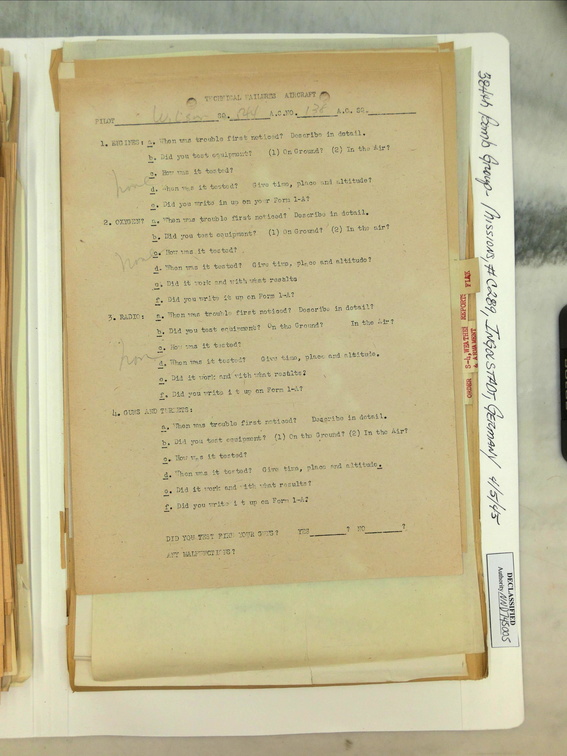 TECHNICAL FAILURES AIRCRAFT
PILOT SQ. 544 A.C.NO. 138 A.C. SQ.
1. ENGINES: a. When was trouble first noticed? Describe in detail.
b. Did you test equipment? (1) On Ground? (2) In the Air?
c. How was it tested?
none
d. When was it tested? Give time, place and altitude?
e. Did you write in up on your Form 1-A?
2. OXYGEN? a. When was trouble first noticed? Describe in detail.
b. Did you test equipment? (1) On Ground? (2) In the air?
c. How was it tested?
none
d. When was it tested? Give time, place and altitude?
e. Did it work and with what results
f. Did you write it up on Form 1-A?
3. RADIO: a. When was trouble first noticed? Describe in detail?
b. Did you test equipment? On the Ground? In the Air?
c. How was it tested?
none
d. When was it tested? Give time, place and altitude.
e. Did it work and with what results?
f. Did you write i t up on Form 1-A?
4. GUNS AND TURRETS:
a. When was trouble first noticed? Describe in detail.
b. Did you test equipment? (1) On the Ground? (2) In the Air?
c. How was it tested?
d. When was it tested? Give time, place and altitude.
e. Did it work and with what results?
f. Did you write i t up on Form 1-A?
DID YOU TEST FIRE YOUR GUNS? YES? NO?
ANY MALFUNCTIONS?
384th Bomb Group - Missions, # C289, INGOLSTADT, GERMANY 4/5/45
S-4, WEATHER REPORT FLAK
ORDER & ARMAMENT
DECLASSIFIED
Authority NND 745005